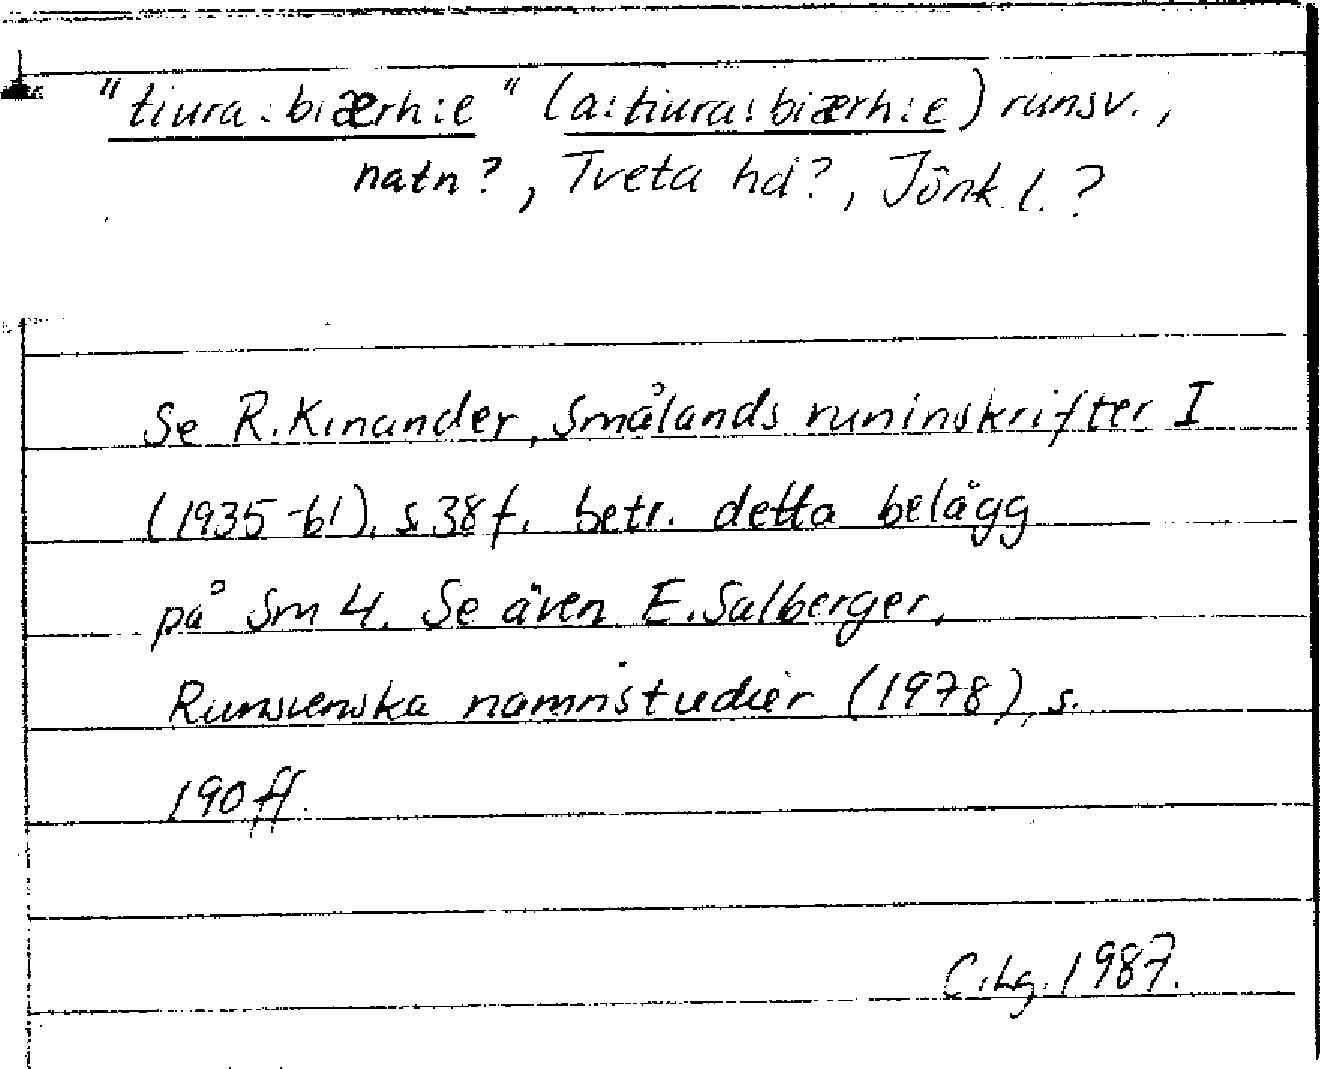 "tiura:biærh:e" (a:tiura:biærh:e) runsv.,
natn?, Tveta hd?, Jönk. l.?
Se R. Kinander, Smålands runinskrifter I
(1935-61), s. 38 f. betr. detta belägg
på Sm 4. Se även E. Salberger,
Runsvenska namnstudier (1978), s.
190 ff.
C. Lg. 1987.